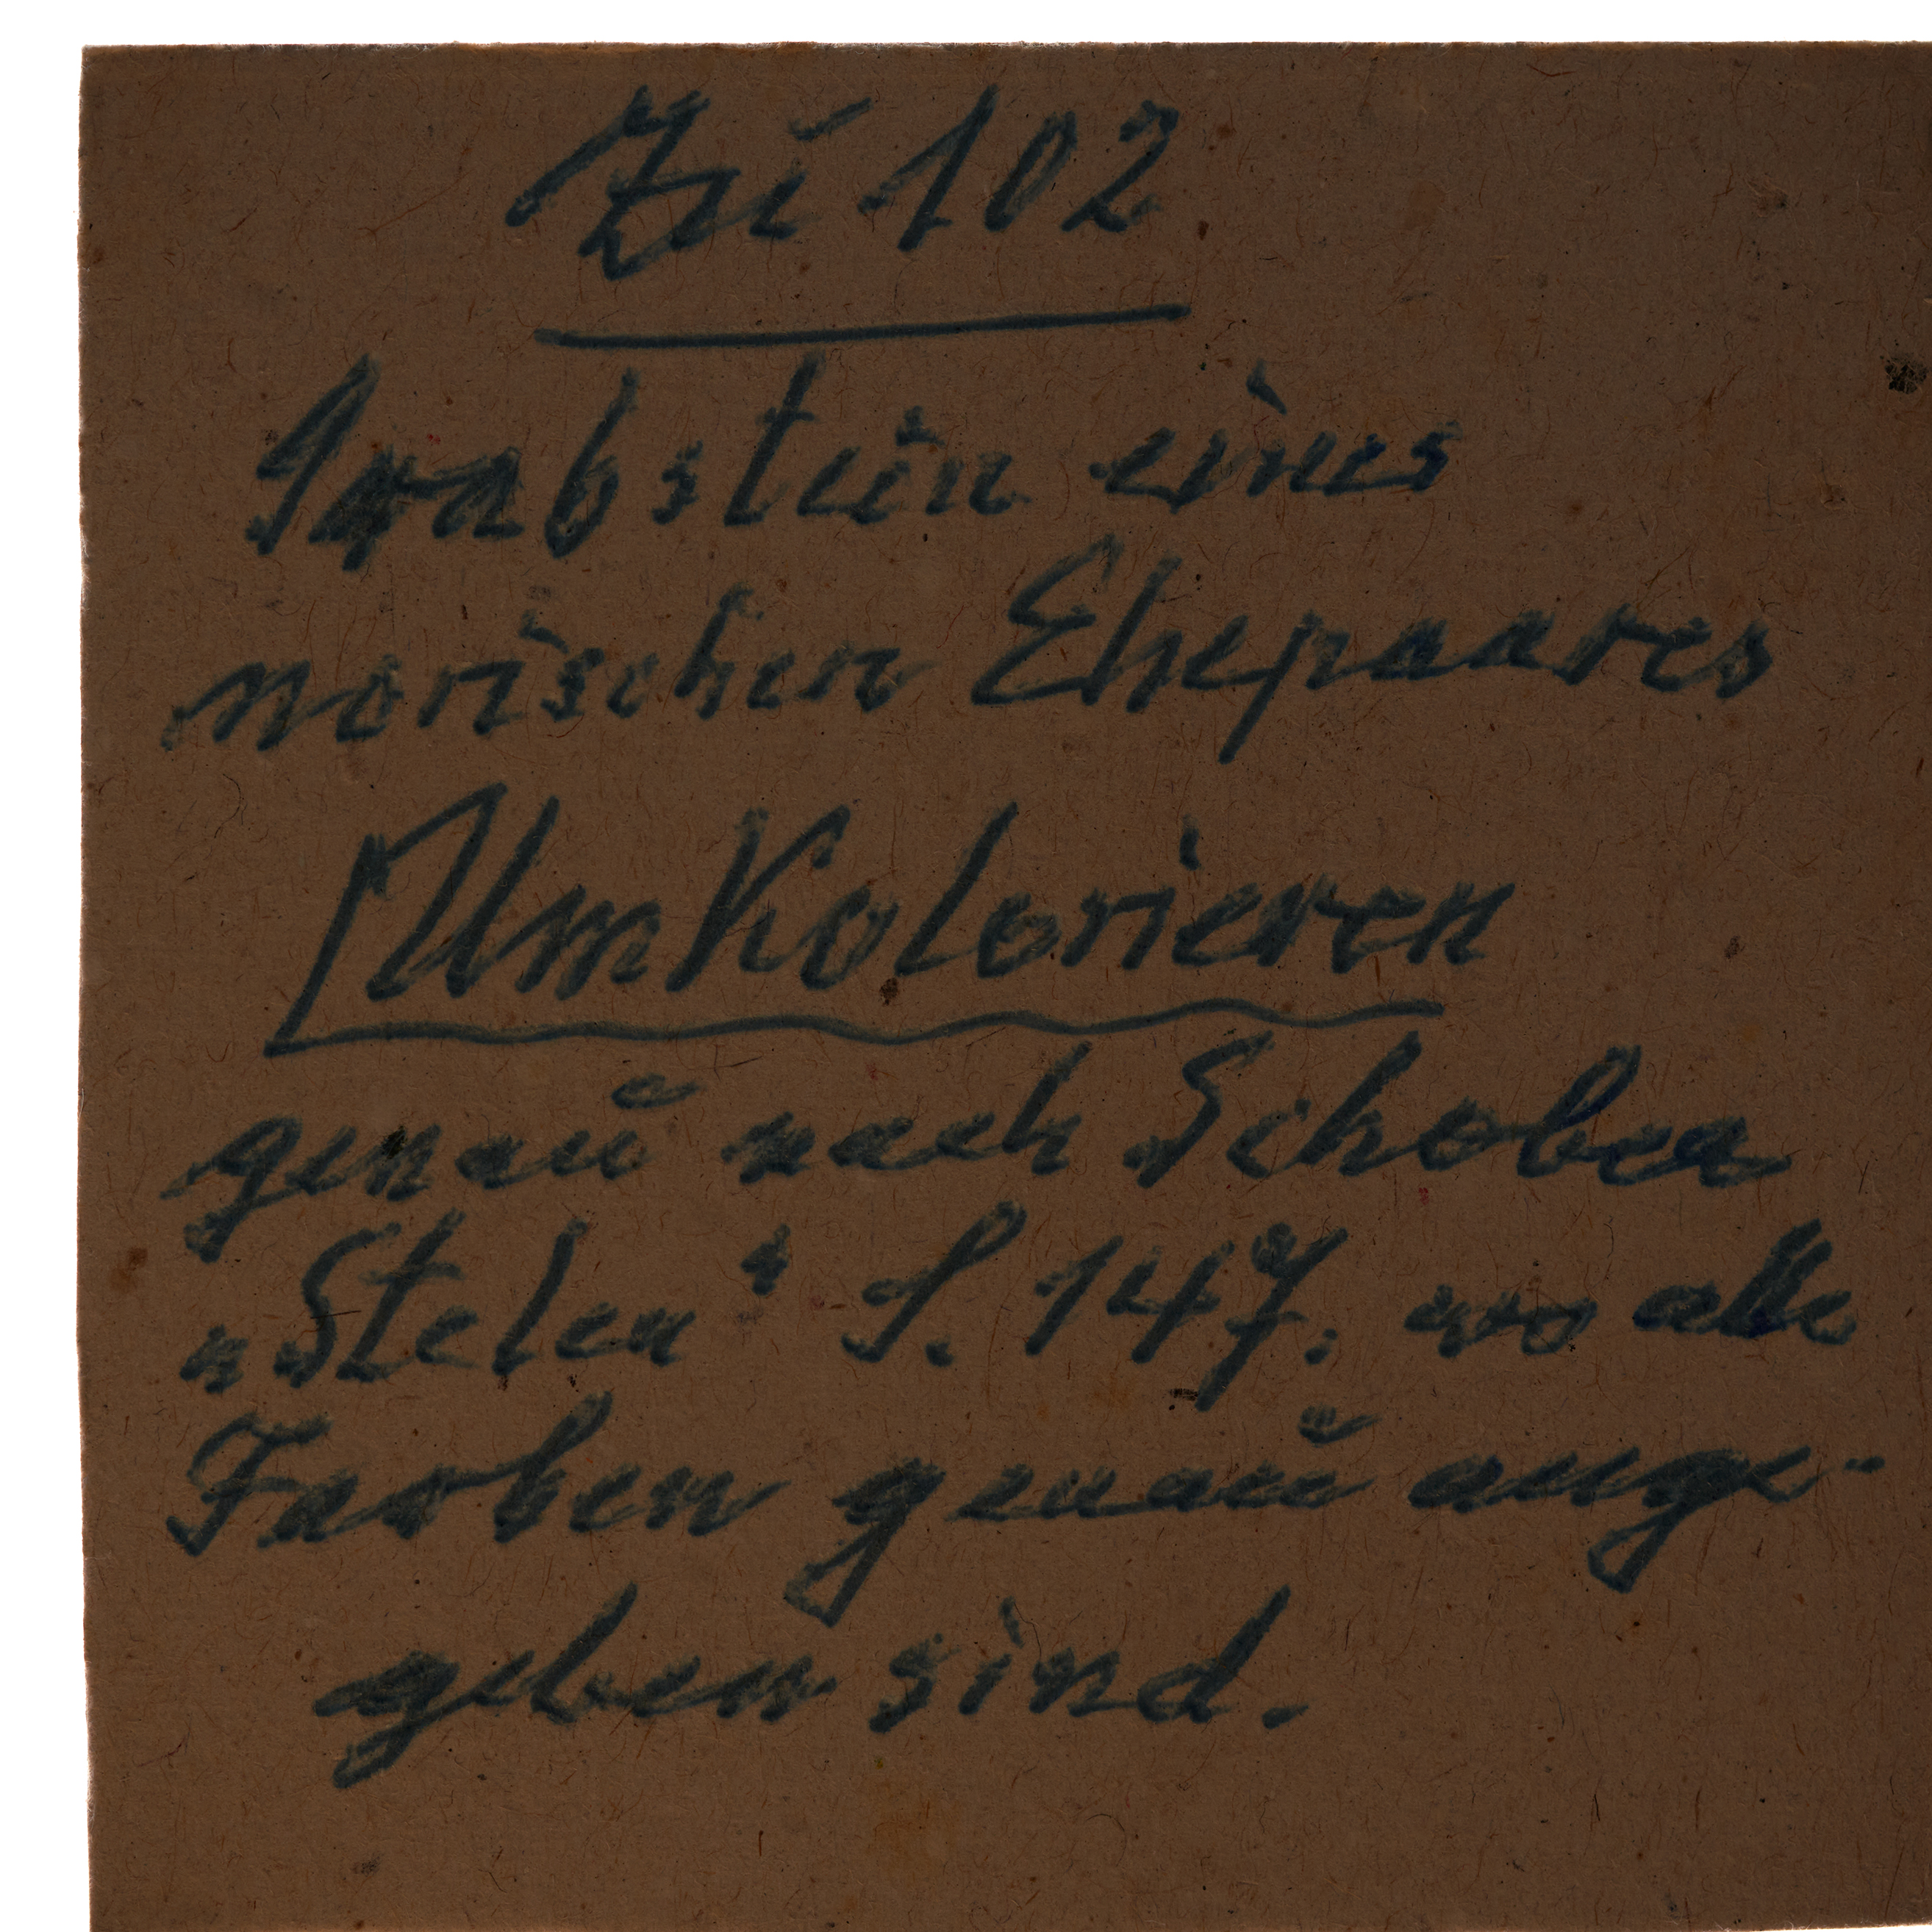 Zu 102
Grabstein eines
norischen Ehepaares
Umkolorieren
genau nach Schober
"Stelen" S. 147. wo alle
Farben genau ange-
geben sind.